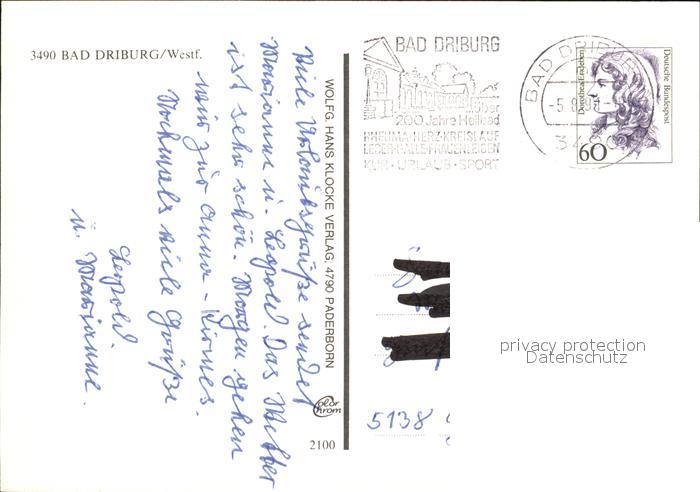 3490 BAD DRIBURG/Westf.
Viele Urlaubsgrüße sendet
Marianne u. Leopold. Das Wetter
ist sehr schön. Morgen gehen
wir zur Anna-Kirmes.
Nochmals viele Grüße
Leopold
u. Marianne.
WOLFG. HANS KLOCKE VERLAG, 4790 PADERBORN
Color
chrom
2100
BAD DRIBURG
über
200 Jahre Heilbad
RHEUMA·HERZ·KREISLAUF
LEBER·GALLE·FRAUENLEIDEN
KUR · URLAUB · SPORT
BAD DRIBURG
-5.8.
Deutsche Bundespost
60
5138
privacy protection
Datenschutz